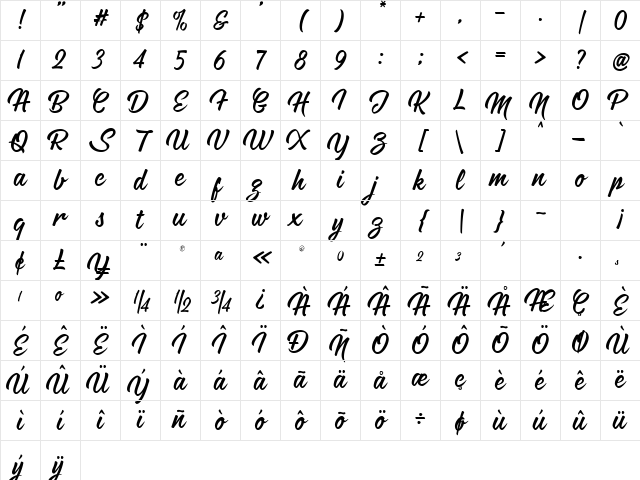 ! " # $ % & ' ( ) * + , - . / 0
1 2 3 4 5 6 7 8 9 : ; < = > ? @
A B C D E F G H I J K L M N O P
Q R S T U V W X Y Z [ \ ] ^ _ `
a b c d e f g h i j k l m n o p
q r s t u v w x y z { | } ¯ ¡
¢ £ ¥ ¨ © ª « ® 0 ± 2 3 ´ · ¸
1 º » 1/4 1/2 3/4 ¿ À Á Â Ã Ä Å Æ Ç È
É Ê Ë Ì Í Î Ï Ð Ñ Ò Ó Ô Õ Ö Ø Ù
Ú Û Ü Ý à á â ã ä å æ ç è é ê ë
ì í î ï ñ ò ó ô õ ö ÷ ø ù ú û ü
ý ÿ